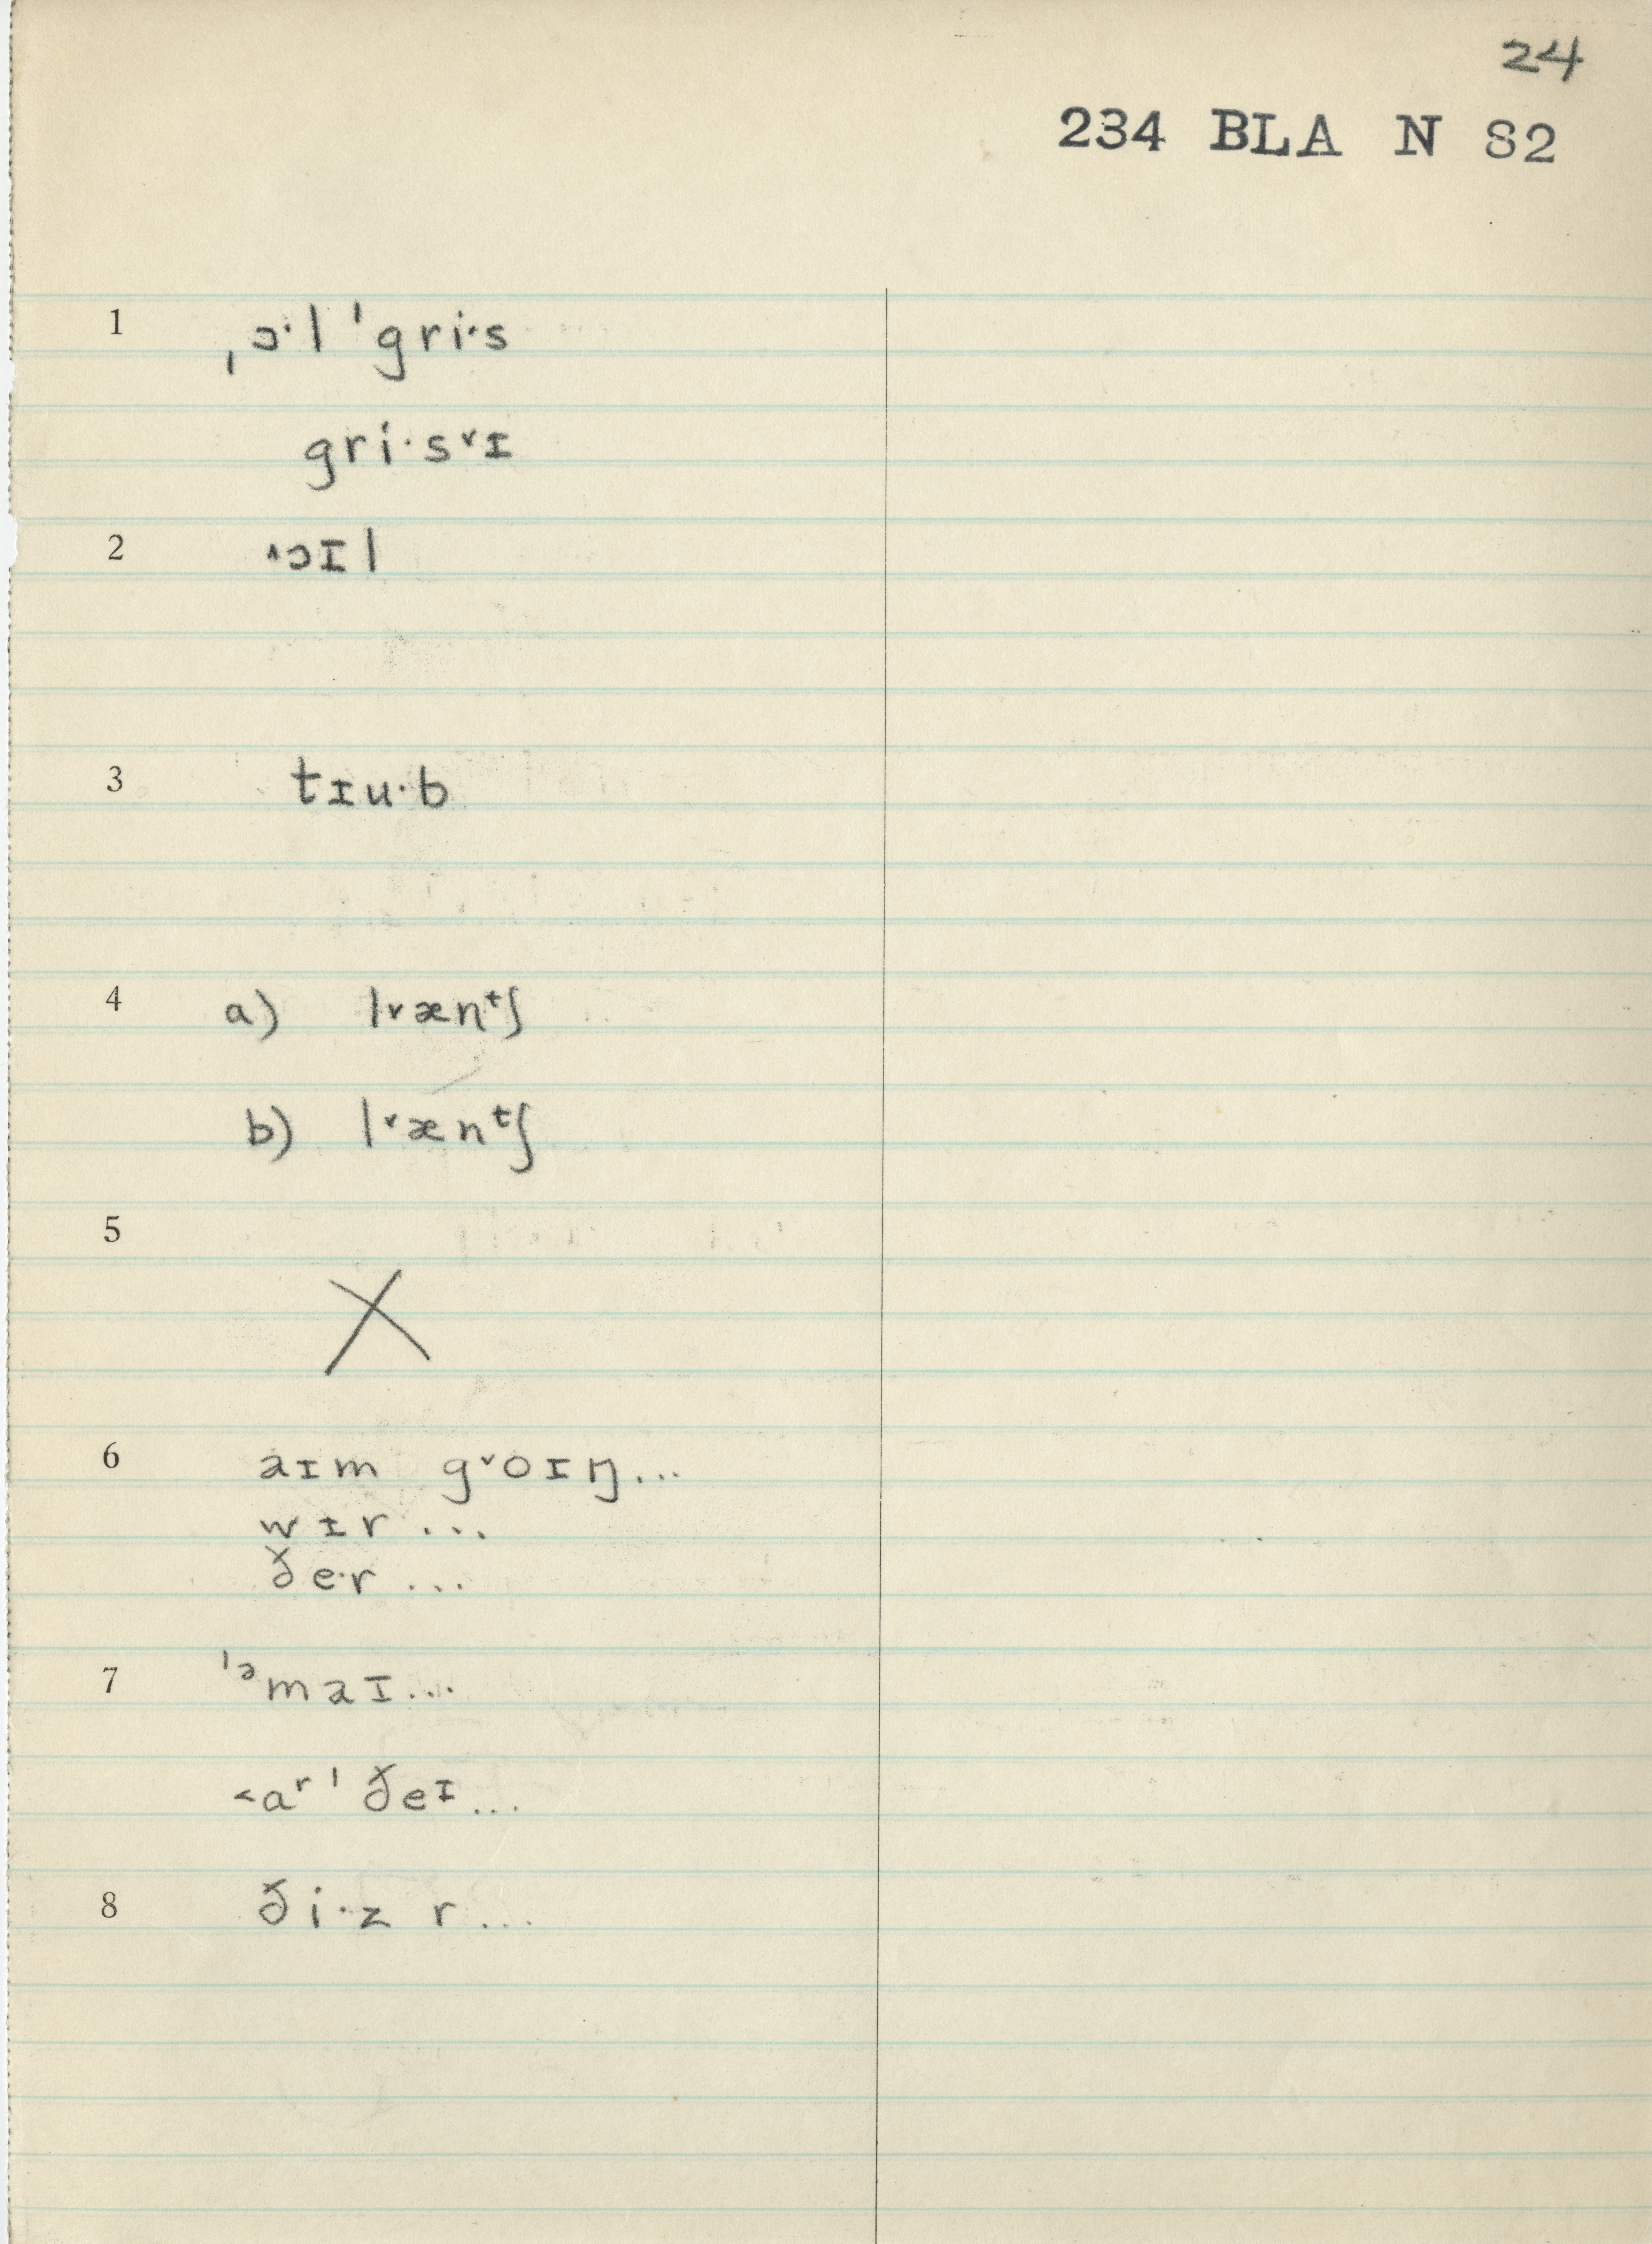 24
234 BLA N S2
1 ˌɔ·l ˈgri·s
gri·s˅ɪ
2 ˄ɔɪl
3 tɪu·b
4 a) l˅ænᵗʃ
b) l˅ænᵗʃ
5
X
6 aɪm g˅oɪŋ...
wɪr ...
ðe·r ...
7 ˈᵊmaɪ...
˂aʳ ˈðeᶦ...
8 ði·z r...